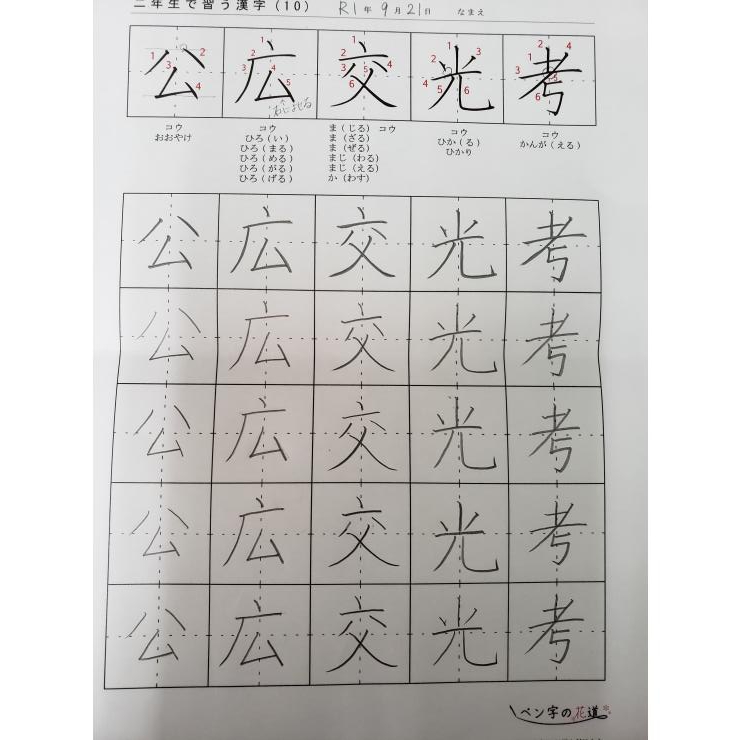 二年生で習う漢字（10） R1年 9月21日 なまえ
公 広 交 光 考
コウ コウ ま（じる） コウ コウ コウ
おおやけ ひろ（い） ま（ざる） ひか（る） かんが（える）
ひろ（まる） ま（ぜる） ひかり
ひろ（める） まじ（わる）
ひろ（がる） まじ（える）
ひろ（げる） か（わす）
公 広 交 光 考
公 広 交 光 考
公 広 交 光 考
公 広 交 光 考
公 広 交 光 考
ペン字の花道